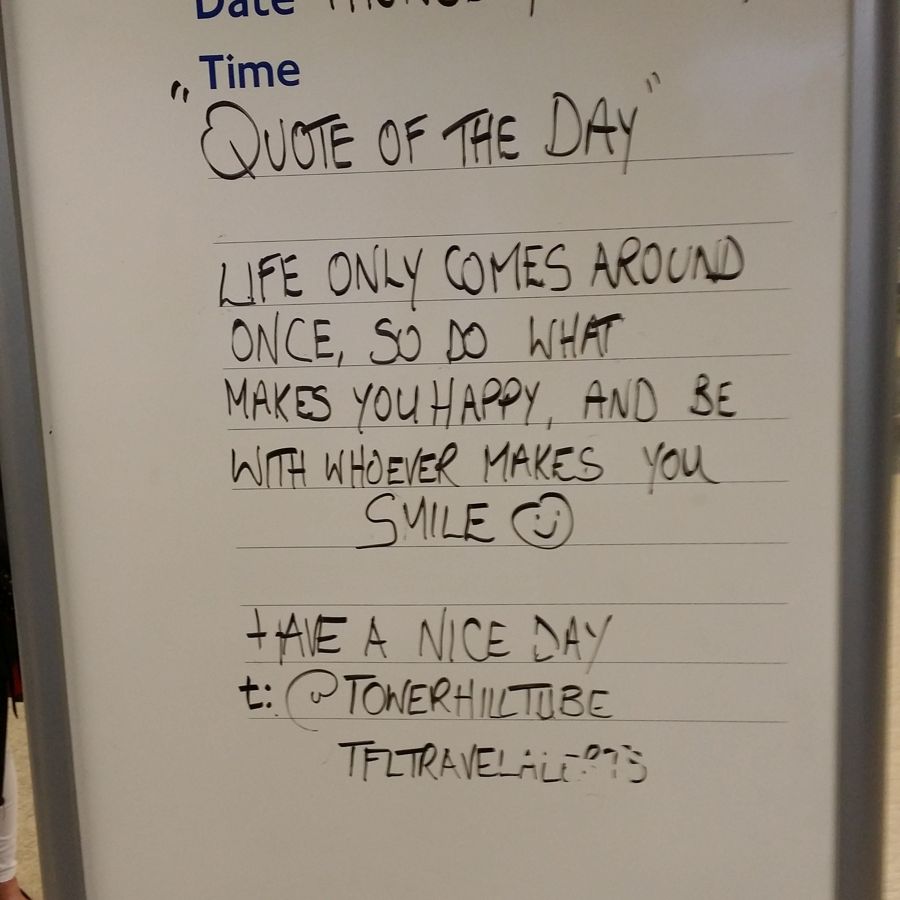 Date
Time
"QUOTE OF THE DAY"
LIFE ONLY COMES AROUND
ONCE, SO DO WHAT
MAKES YOU HAPPY, AND BE
WITH WHOEVER MAKES YOU
SMILE
HAVE A NICE DAY
t: @TOWERHILLTUBE
TFLTRAVELALERTS